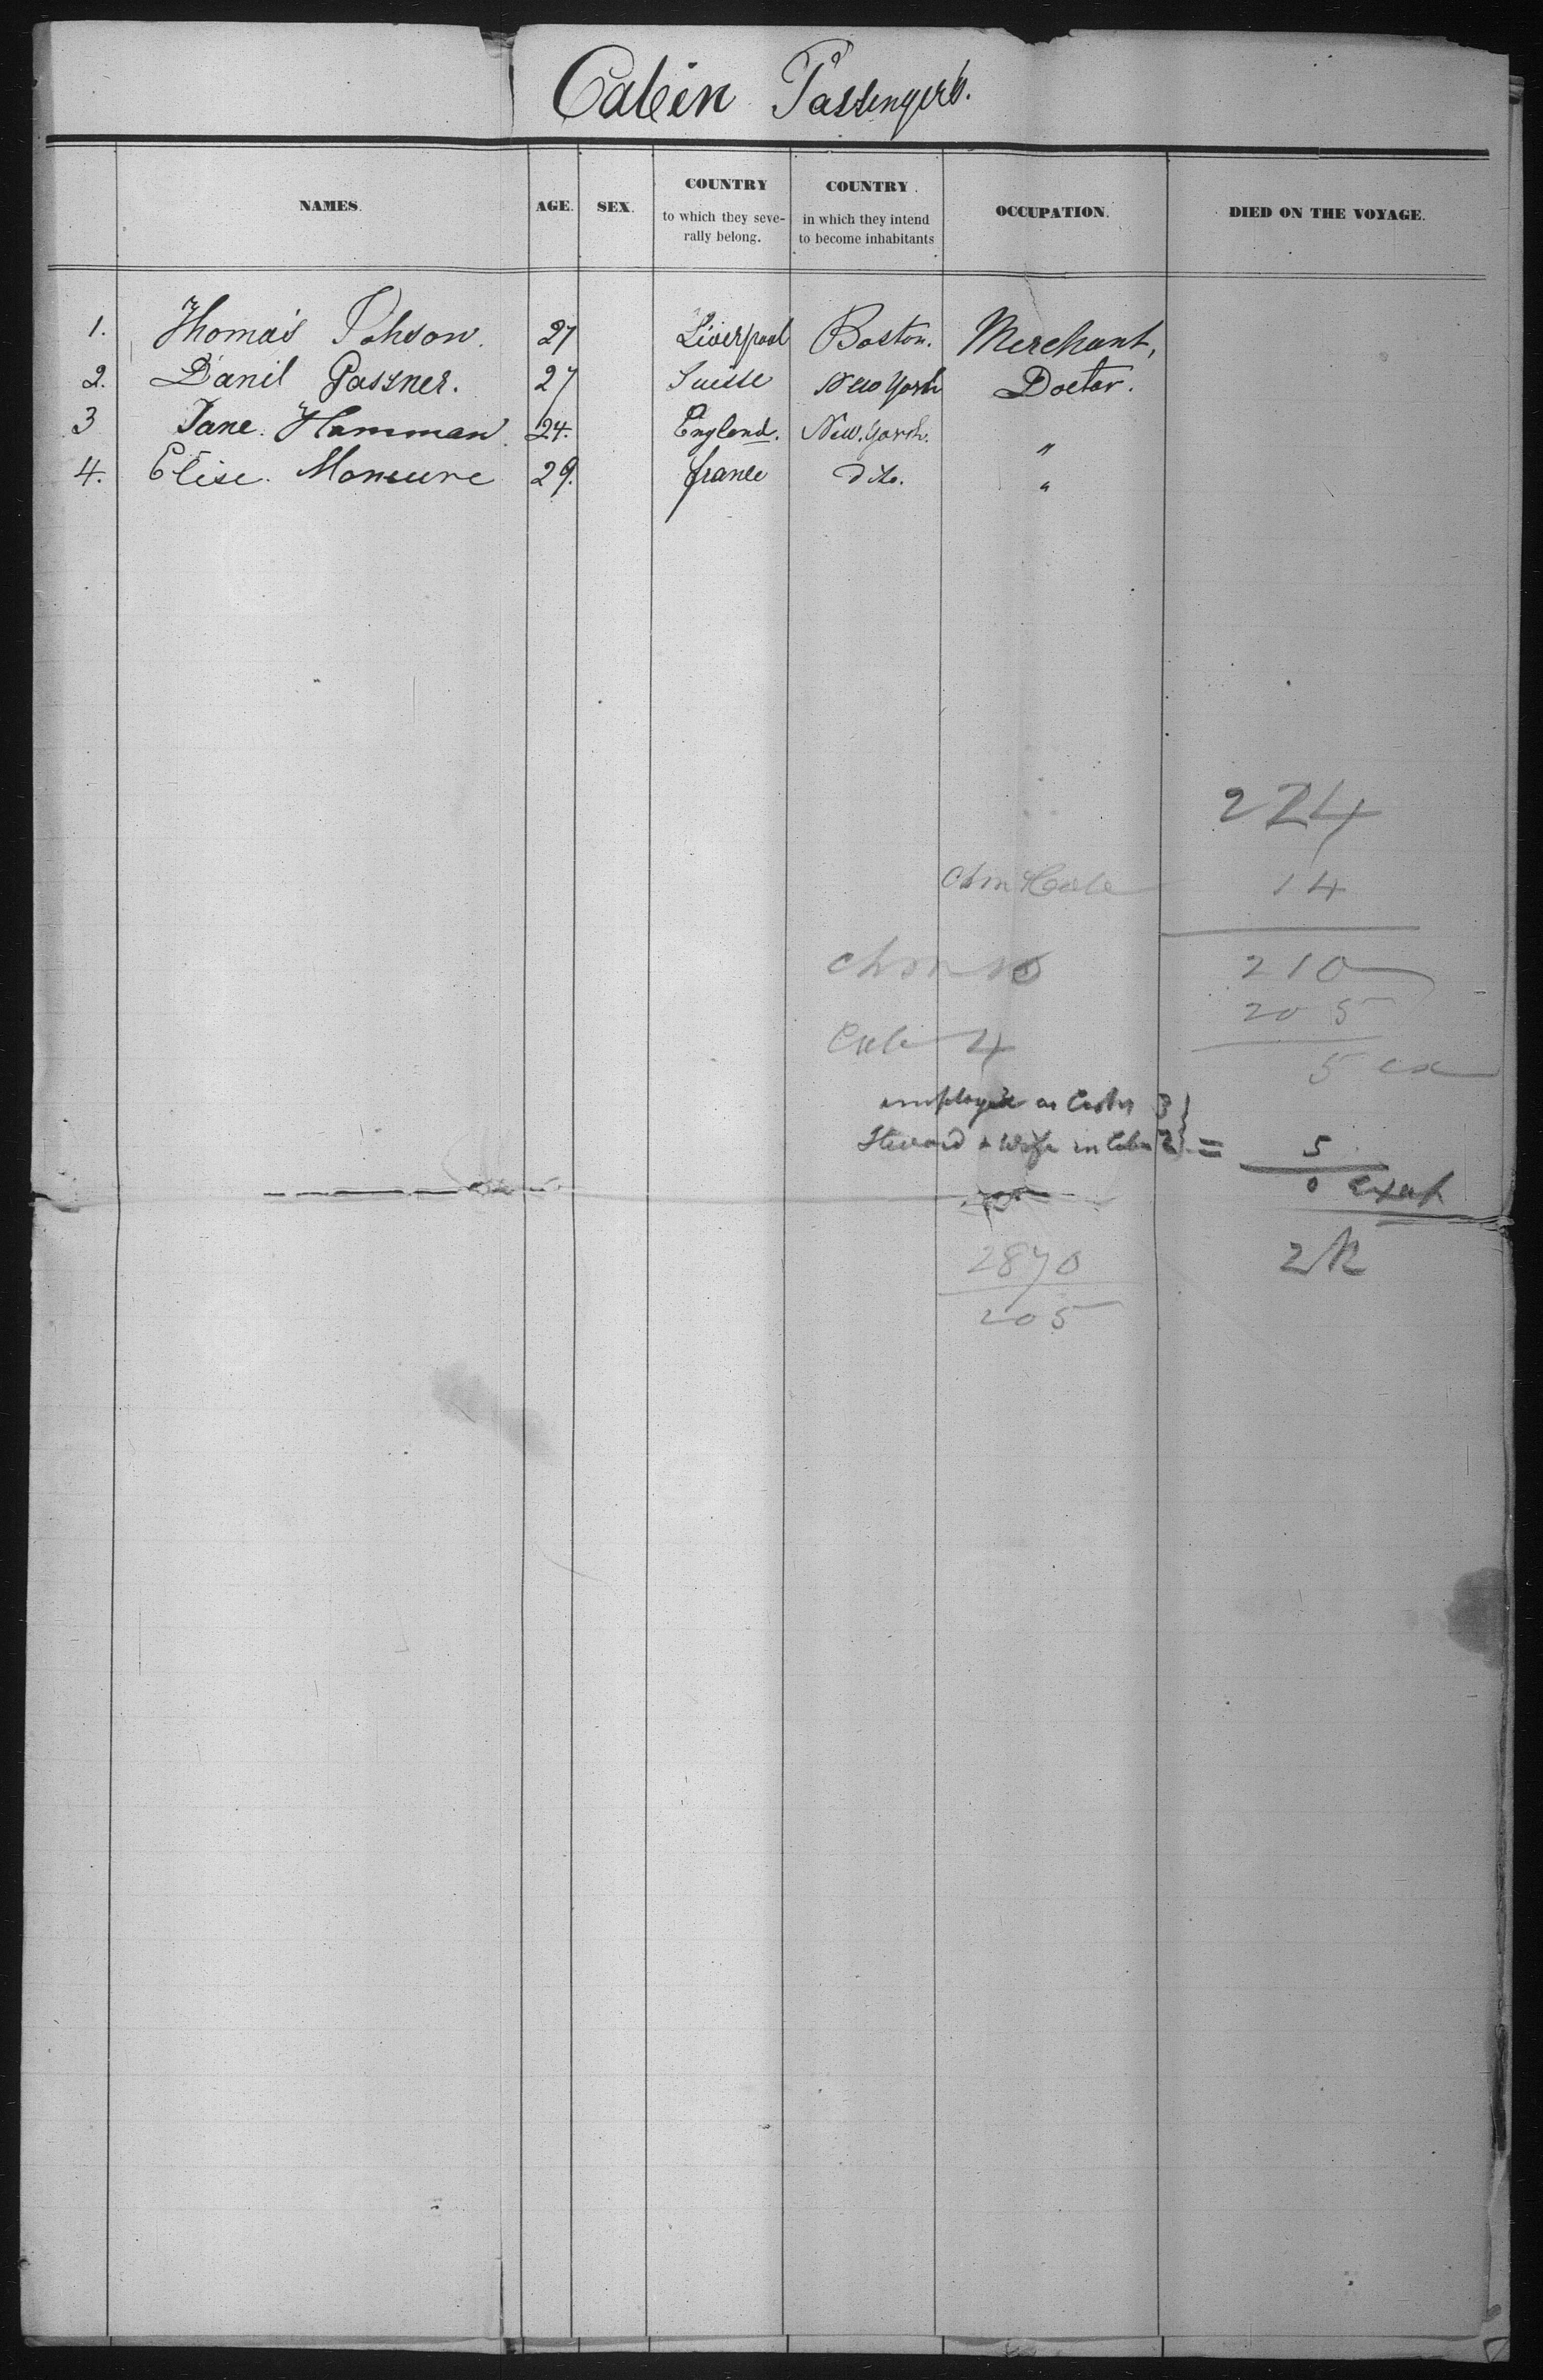 Cabin Passengers.
NAMES. AGE. SEX. COUNTRY to which they seve- rally belong. COUNTRY in which they intend to become inhabitants OCCUPATION. DIED ON THE VOYAGE.
1. Thomas Johson. 27 Liverpool Boston. Merchant,
2. Danil Gassner. 27 Suisse New York Doctor.
3 Jane. Hamman. 24. England. New. York. "
4. Elise. 29. france dito. "
224
14
210
205
4
5
employed as 3}
Steward & Wife in 2} = 5
0
2870
205